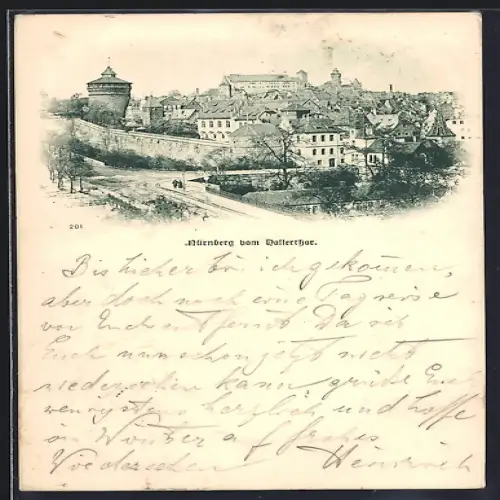 201
Nürnberg vom Hallerthor.
Bis hieher bin ich gekommen,
aber doch noch eine Tagreise
von Euch entfernt. Da ich
Euch nun schon jetzt nicht
kann grüße Euch
wenigstens herzlich und hoffe
im Winter auf frohes
Wiedersehen Heinrich